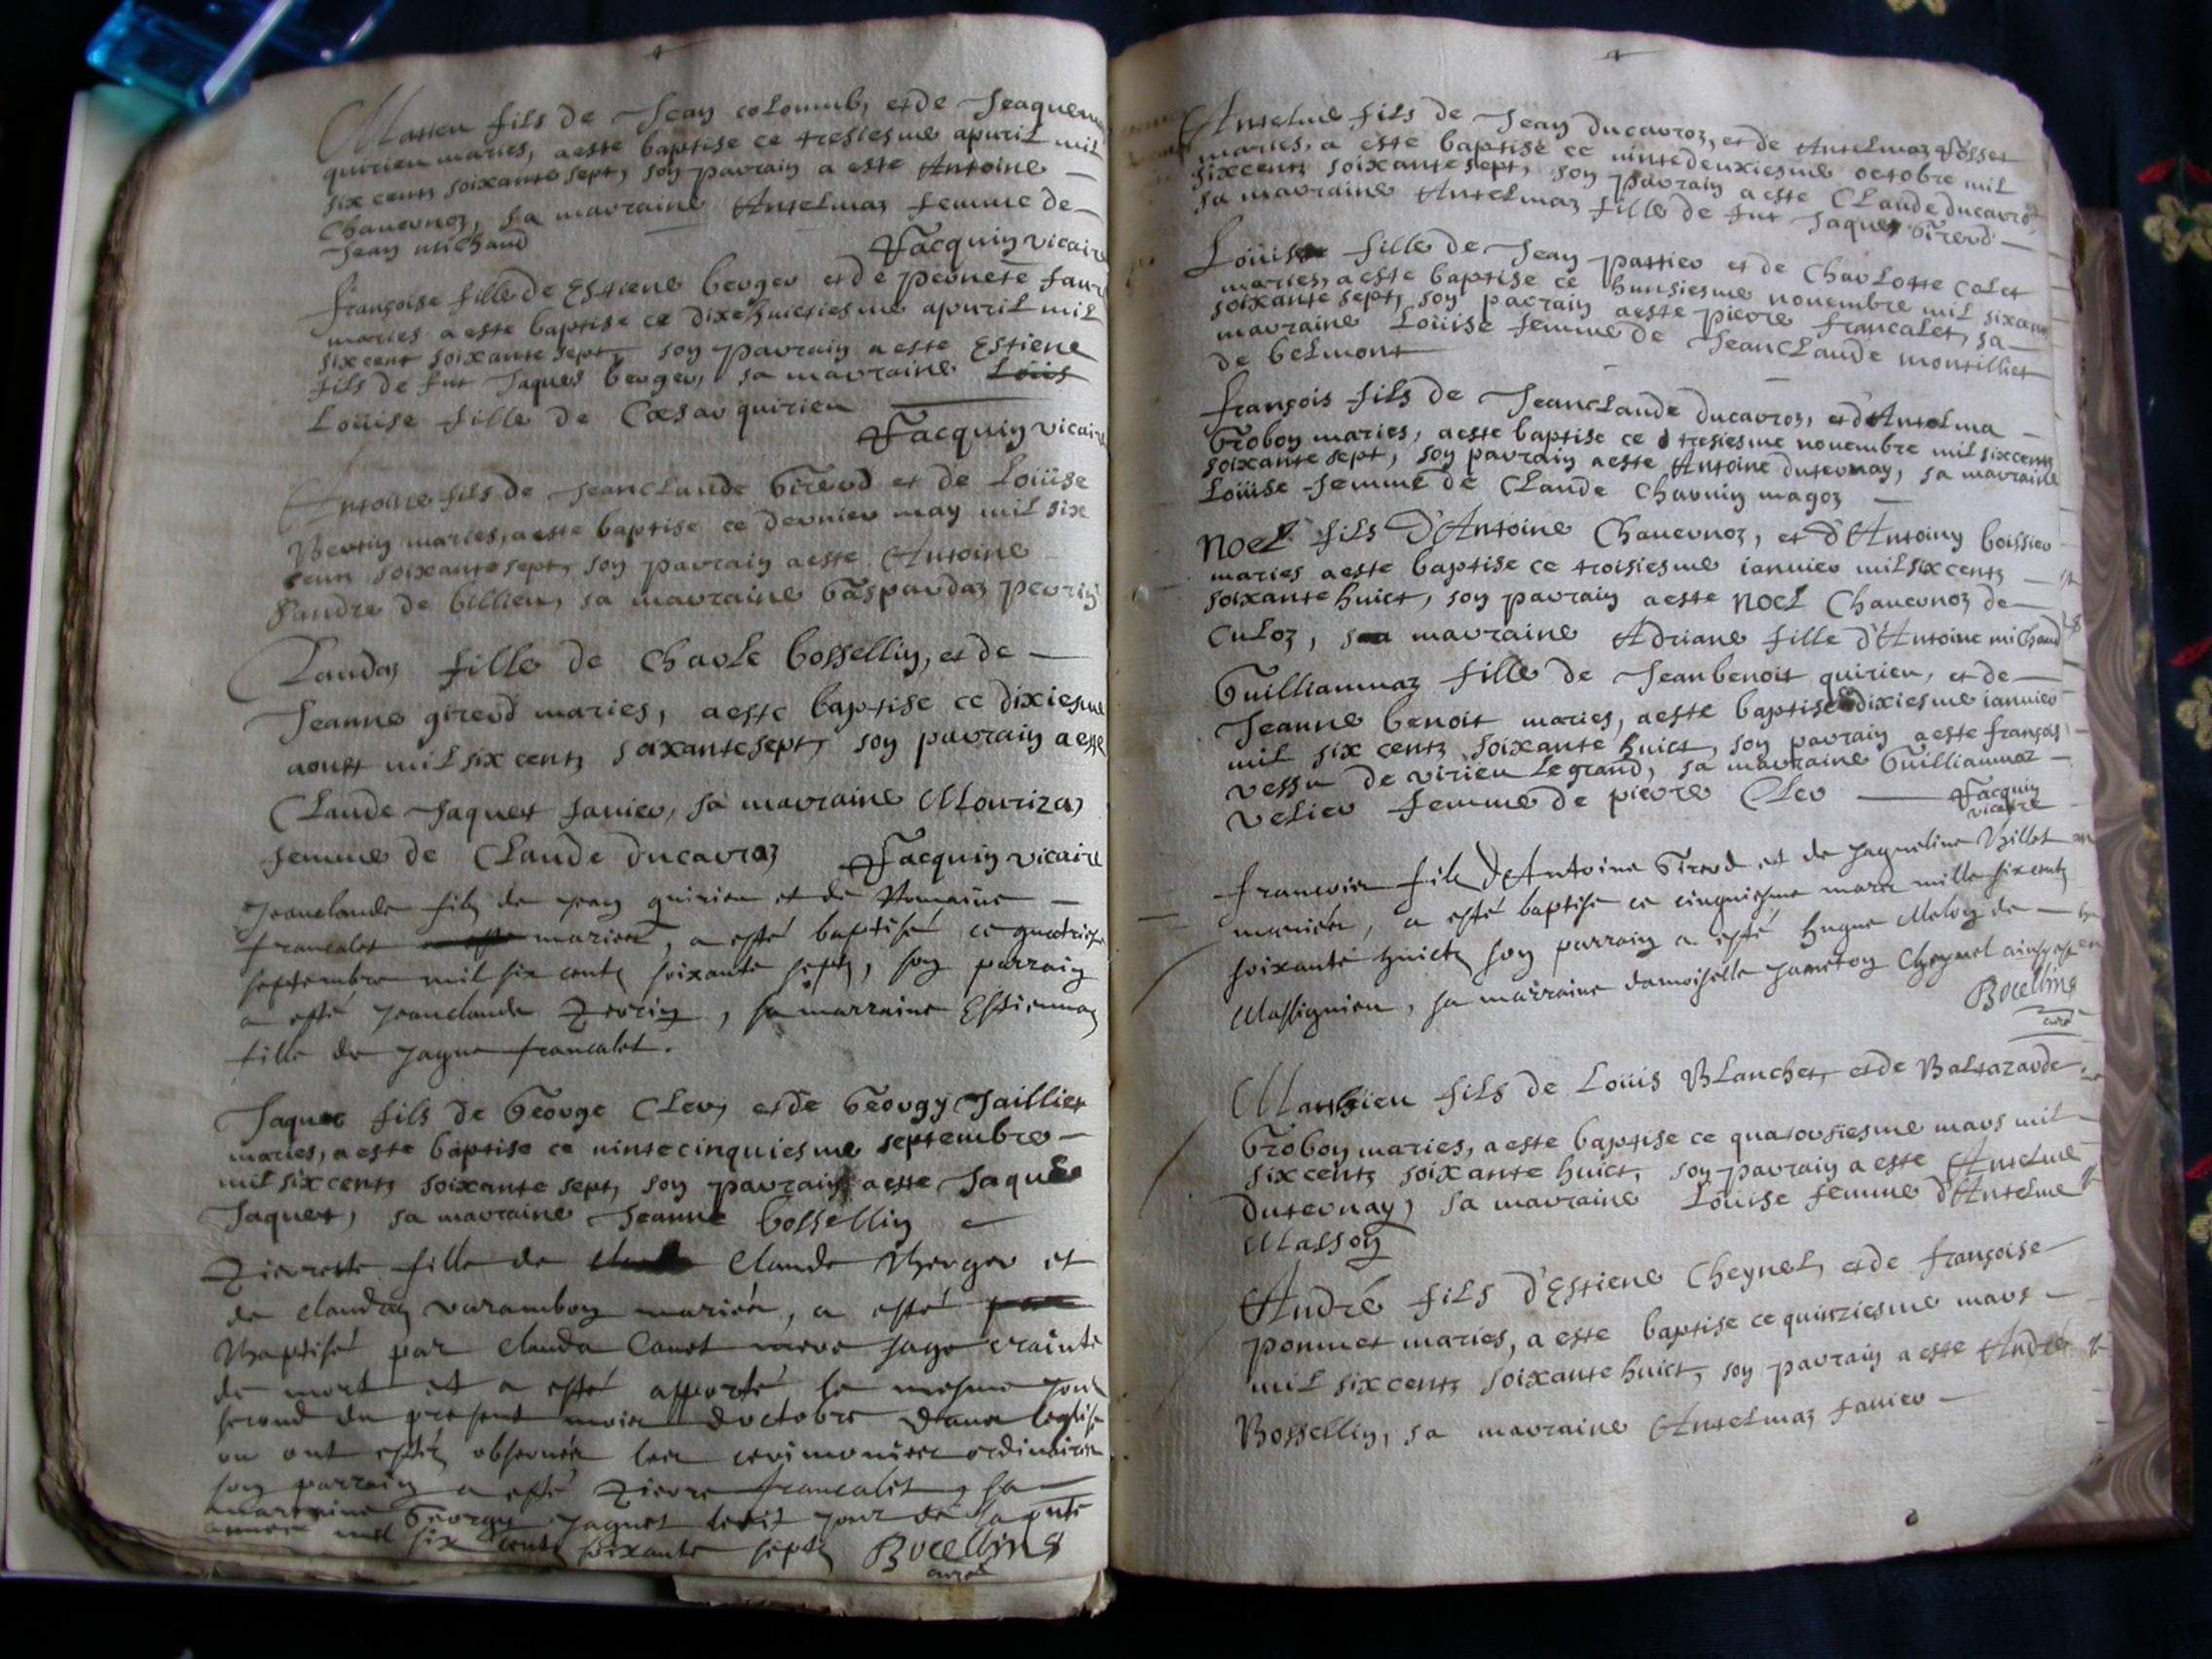 Matieu fils de Jean colomb, et de Jeaquem
quirieu maries, a este baptise ce tresiesme apuril mil
six centz soixante sept, son parrain a este Antoine
Chauernoz, sa marraine Antelmaz femme de
Jean michaud
Jacquin vicaire
françoise fille de Estiene berger et de pernete
maries a este baptise ce dixehuictiesme apuril mil
six cent soixante sept, son parrain a este Estiene
fils de fut Jaques berger, sa marraine Loüis
Loüise fille de Cæsar quirieu
Jacquin vicaire
Antoine fils de Jeanclaude Gireud et de Loüise
Bertin maries, a este baptise ce dernier may mil six
centz soixante sept, son parrain a este Antoine
Sandre de billieu, sa marraine Gaspardaz perrin
Claudaz fille de Charle bossellin, et de
Jeanne gireud maries, a este baptise ce dixiesme
aoust mil six centz soixante sept, son parrain a este
Claude Jaquet Janier, sa marraine Mourizaz
femme de Claude ducarroz Jacquin vicaire
Jeanclaude filz de jean quirieu et de Romaine
francalet mariez, a esté baptisé ce quatriesme
septembre mil six centz soixante sept, son parrain
a esté jeanclaude perrin, sa marraine Estiennaz
fille de jaque francalet.
Jaques fils de George Clerc, et de Georgy Taillier
maries, a este baptise ce vintecinquiesme septembre
mil six centz soixante sept, son parrain a este Jaque
Jaquet, sa marraine Jeanne bossellin
Pierrette fille de Claude Berger et
de claudaz varambon mariés, a esté
Baptisé par Clauda Canet mere sage crainte
de mort et a esté apporté le mesme jour
second du present mois d'octobre dans l'eglise
ou ont estés observés les cerimonies ordinaires
son parrain a esté Pierre francalet, sa
marraine Georgy jaquet ledit jour de la pnte
année mil six centz soixante sept Bocellins
curé
Antelme fils de Jean ducarroz, et de Antelmaz fosset
maries, a este baptise ce vintedeuxiesme octobre mil
sixcentz soixante sept, son parrain a este Claude ducarro
sa marraine Antelmaz fille de fut Jaques Gireud
Loüise fille de Jean partier et de Charlotte Calet
maries, a este baptise ce hunsiesme nouembre mil sixcens
soixante sept, son parrain a este pierre francalet, sa
marraine Loüise femme de Jeanclaude montilliet
de belmont
françois fils de Jeanclaude ducarroz, et d'Antelma
Grobon maries, a este baptise ce tresiesme nouembre mil sixcentz
soixante sept, son parrain a este Antoine dusernay, sa marraine
Loüise femme de Claude Charuin magoz
Noel fils d'Antoine Chauernoz, et d'Antoiny boissier
maries a este baptise ce troisiesme ianuier mil six centz
soixante huict, son parrain a este Noel Chauernoz de
Culoz, sa marraine Adriane fille d'Antoine michaud
Guilliaumaz fille de Jeanbenoit quirieu, et de
Jeanne benoit maries, a este baptise dixiesme ianuier
mil six centz soixante huict, son parrain a este françois
vessu de virieu le grand, sa marraine Guilliaumaz
velier femme de pierre Cler Jacquin
vicaire
francois filz d'Antoine Gireud et de Jaqueline Billot
mariés, a esté baptisé ce cinquiesme mars mille six centz
soixante huict, son parrain a esté hugue Melon de
Massignieu, sa marraine damoiselle jameton Cheynel
Bocellins
curé
Mathieu fils de Loüis Blanchet, et de Baltazarde
Grobon maries, a este baptise ce quatorsiesme mars mil
six centz soixante huict, son parrain a este Antelme
dusernay, sa marraine Loüise femme d'Antelme
Masson
André fils d'Estiene Cheynel, et de françoise
pommet maries, a este baptise ce quinziesme mars
mil six centz soixante huict, son parrain a este André
Bossellin, sa marraine Antelmaz Janier